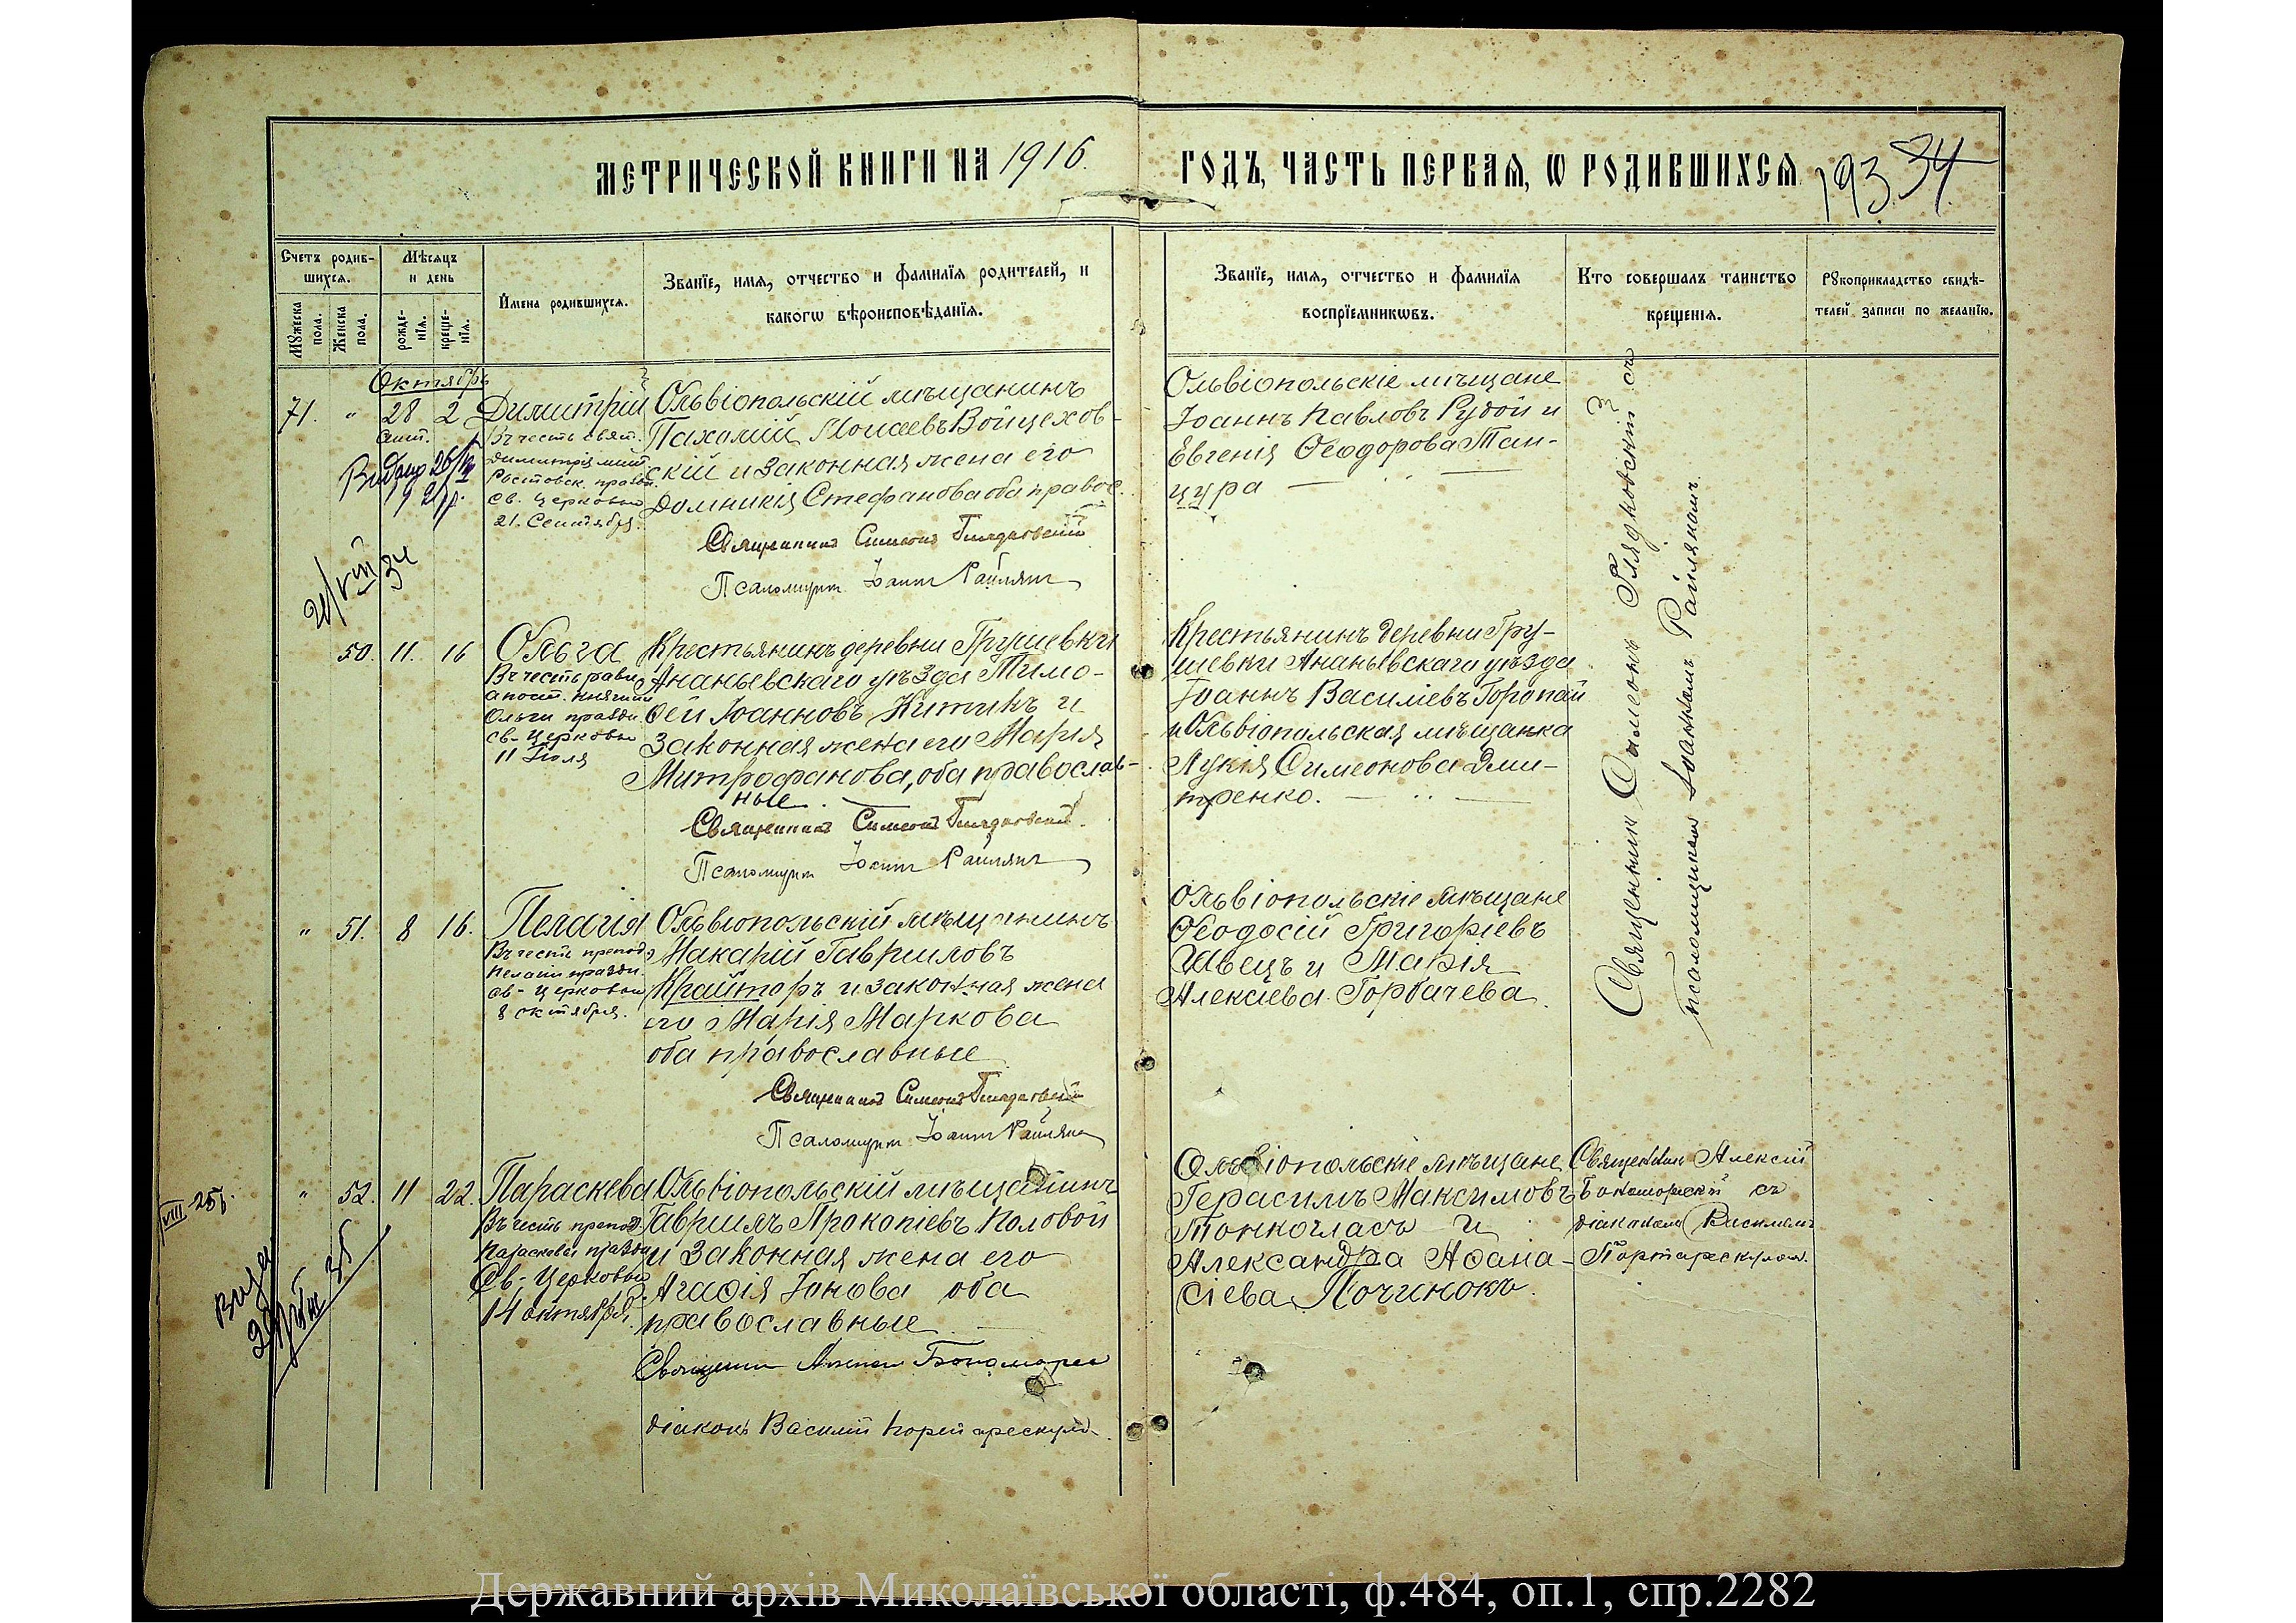 МЕТРИЧЕСКОЙ КНИГИ НА 1916.
ГОДЪ, ЧАСТЬ ПЕРВАЯ, Ѡ РОДИВШИХСЯ
193. 34
Счетъ родив-
шихся.
Мѣсяцъ
и день
Мужеска
пола.
Женска
пола.
рожде-
нія.
креще-
нія.
Имена родившихся.
Званіе, имя, отчество и фамилія родителей, и
какогѡ вѣроисповѣданія.
Званіе, имя, отчество и фамилія
воспріемникѡвъ.
Кто совершалъ таинство
крещенія.
Рукоприкладство свидѣ-
телей записи по желанію.
Октябрь
71. " 28 2
Димитрій
Въ честь свят.
Димитрія мит.
Ростовск. праздн.
св. Церковью
21. Сентября.
Ольвіопольскій мѣщанинъ
Пахомій Моисеевъ Войцехов-
скій и законная жена его
Домникія Стефанова оба правос.
Священникъ Симеонъ Глядковскій
Псаломщикъ Іоаннъ Райлянъ
Ольвіопольскіе мѣщане
Іоаннъ Павловъ Рудой и
Евгенія Ѳеодорова Тан-
цура
Священник Симеонъ Глядковскій съ
псаломщикомъ Іоанномъ Райляномъ.
21/VIII 34
50. 11. 16
Ольга
Въ честь равно
апост. княгини
Ольги праздн.
св. Церковью
11 Іюля
Крестьянинъ деревни Грушевки
Ананьевскаго уѣзда Тимо-
ѳей Іоанновъ Китикъ и
законная жена его Марія
Митрофанова, оба православ-
ные
Священникъ Симеонъ Глядковскій.
Псаломщикъ Іоаннъ Райлянъ
Крестьянинъ деревни Гру-
шевки Ананьевскаго уѣзда
Іоаннъ Василіевъ Горопай
и Ольвіопольская мѣщанка
Лукія Симеонова Дми-
тренко.
" 51. 8 16.
Пелагія
Въ честь препод.
Пелагіи праздн.
св. Церковью
8 октября.
Ольвіопольскій мѣщанинъ
Макарій Гавриловъ
Крайторъ и законная жена
его Марія Маркова
оба православные
Священникъ Симеонъ Глядковскій
Псаломщикъ Іоаннъ Райлянъ
Ольвіопольскіе мѣщане
Ѳеодосій Григоріевъ
Швецъ и Марія
Алексіева Горбачева.
" 52. 11 22.
Параскева
Въ честь препод.
Параскевы праздн.
Св. Церковью
14 октября.
Ольвіопольскій мѣщанинъ
Гавриилъ Прокопіевъ Половой
и законная жена его
Агафія Іонова оба
православные
Священник Алексій
діаконъ Василій
Ольвіопольскіе мѣщане
Герасимъ Максимовъ
Тонкогласъ и
Александра Аѳана-
сіева Починокъ.
Священник Алексій
съ
діакономъ Василіемъ
VIII-25г.
Державний архів Миколаївської області, ф.484, оп.1, спр.2282